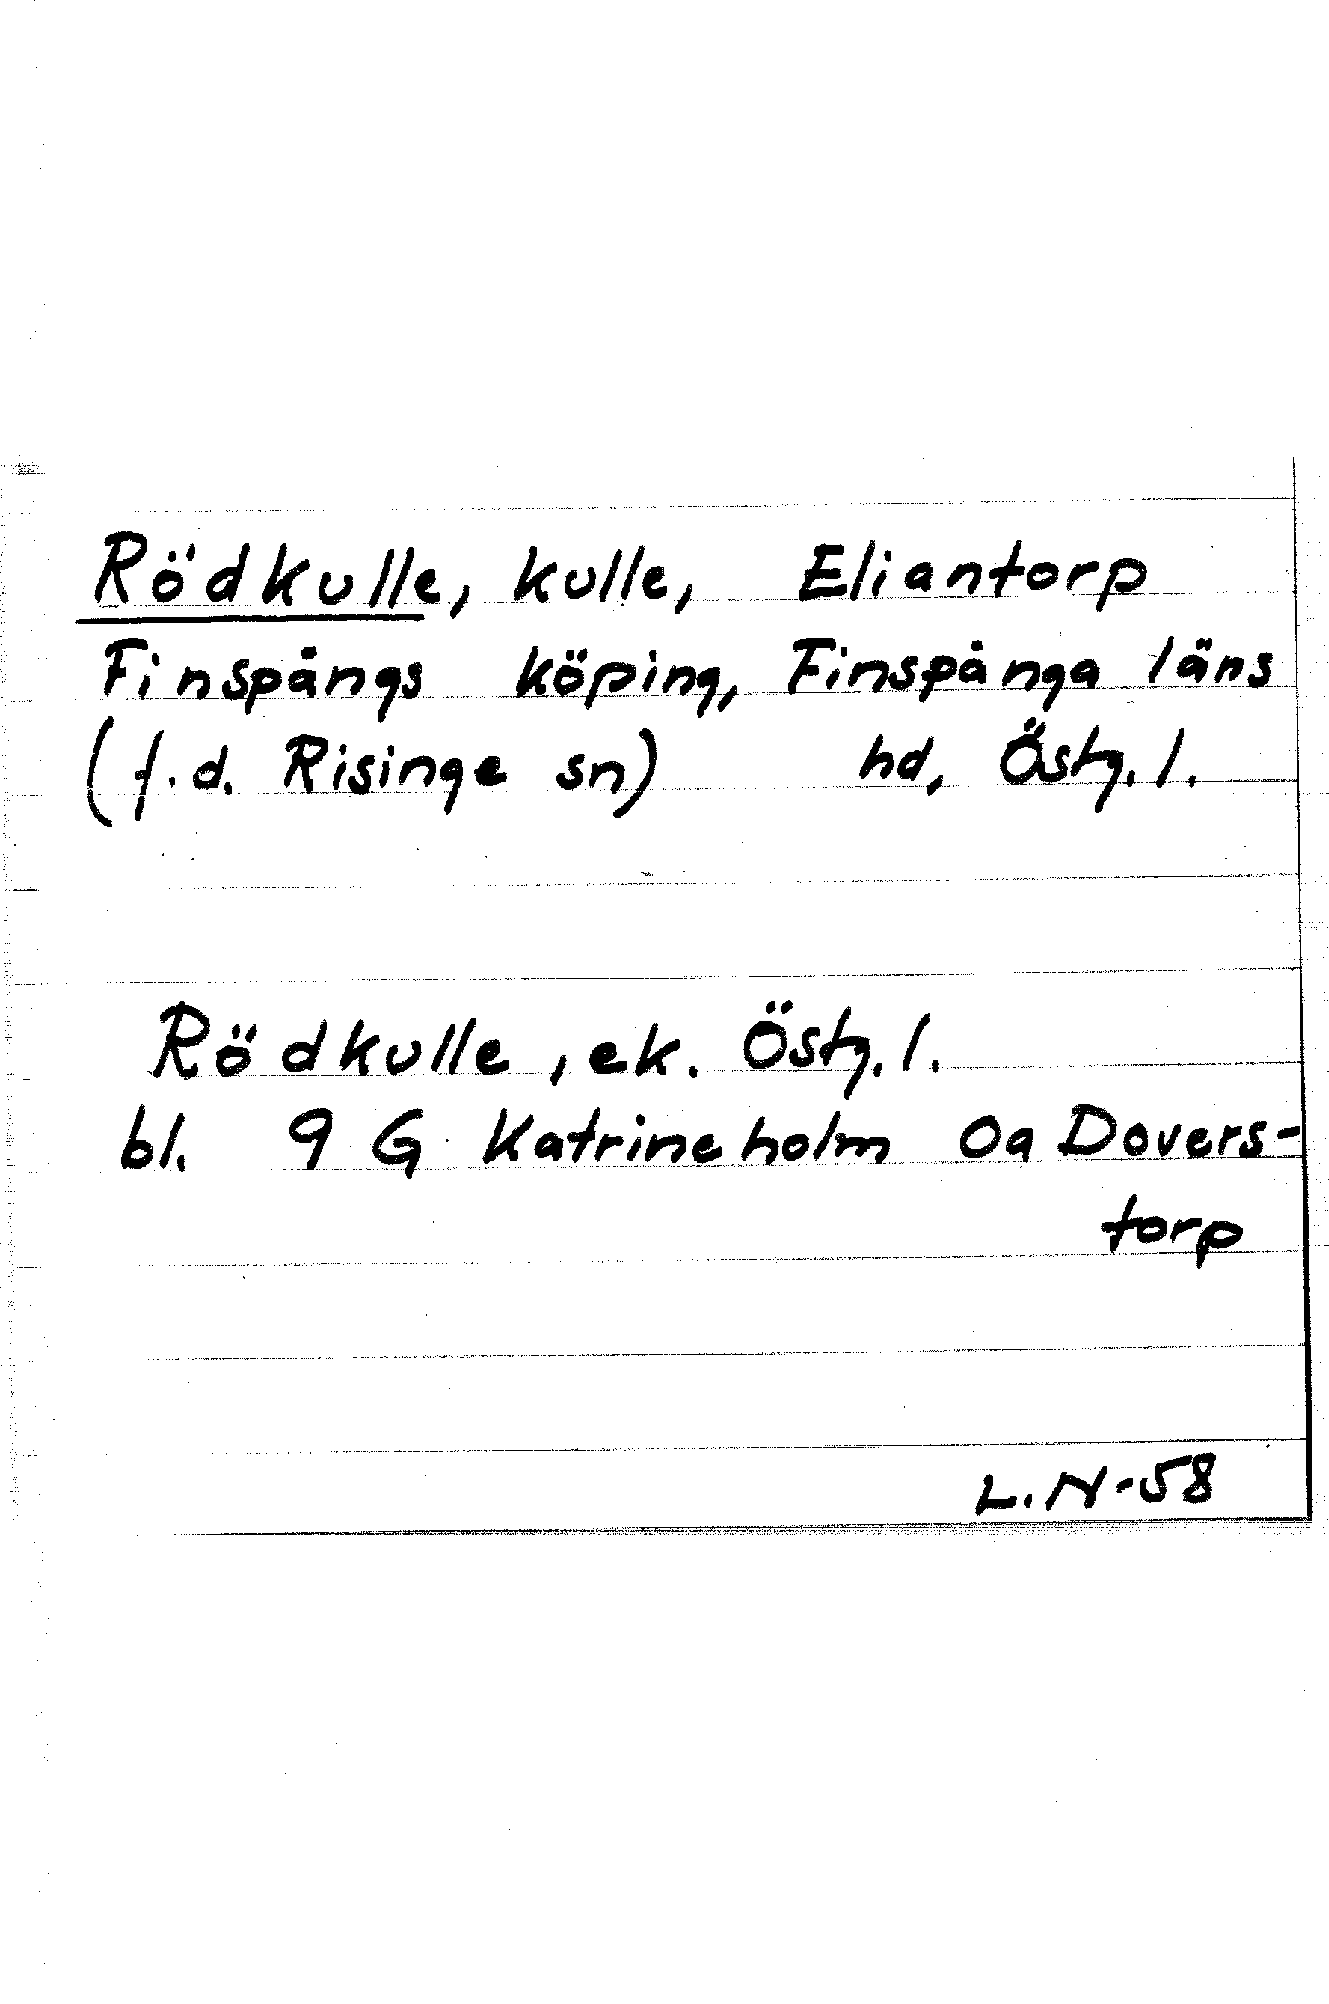 Rödkulle, kulle, Eliantorp
Finspångs köping, Finspånga läns
(f.d. Risinge sn) hd, Östg. l.
Rödkulle, ek. Östg. l.
bl. 9 G Katrineholm 0a Dovers-
torp
L.N-58